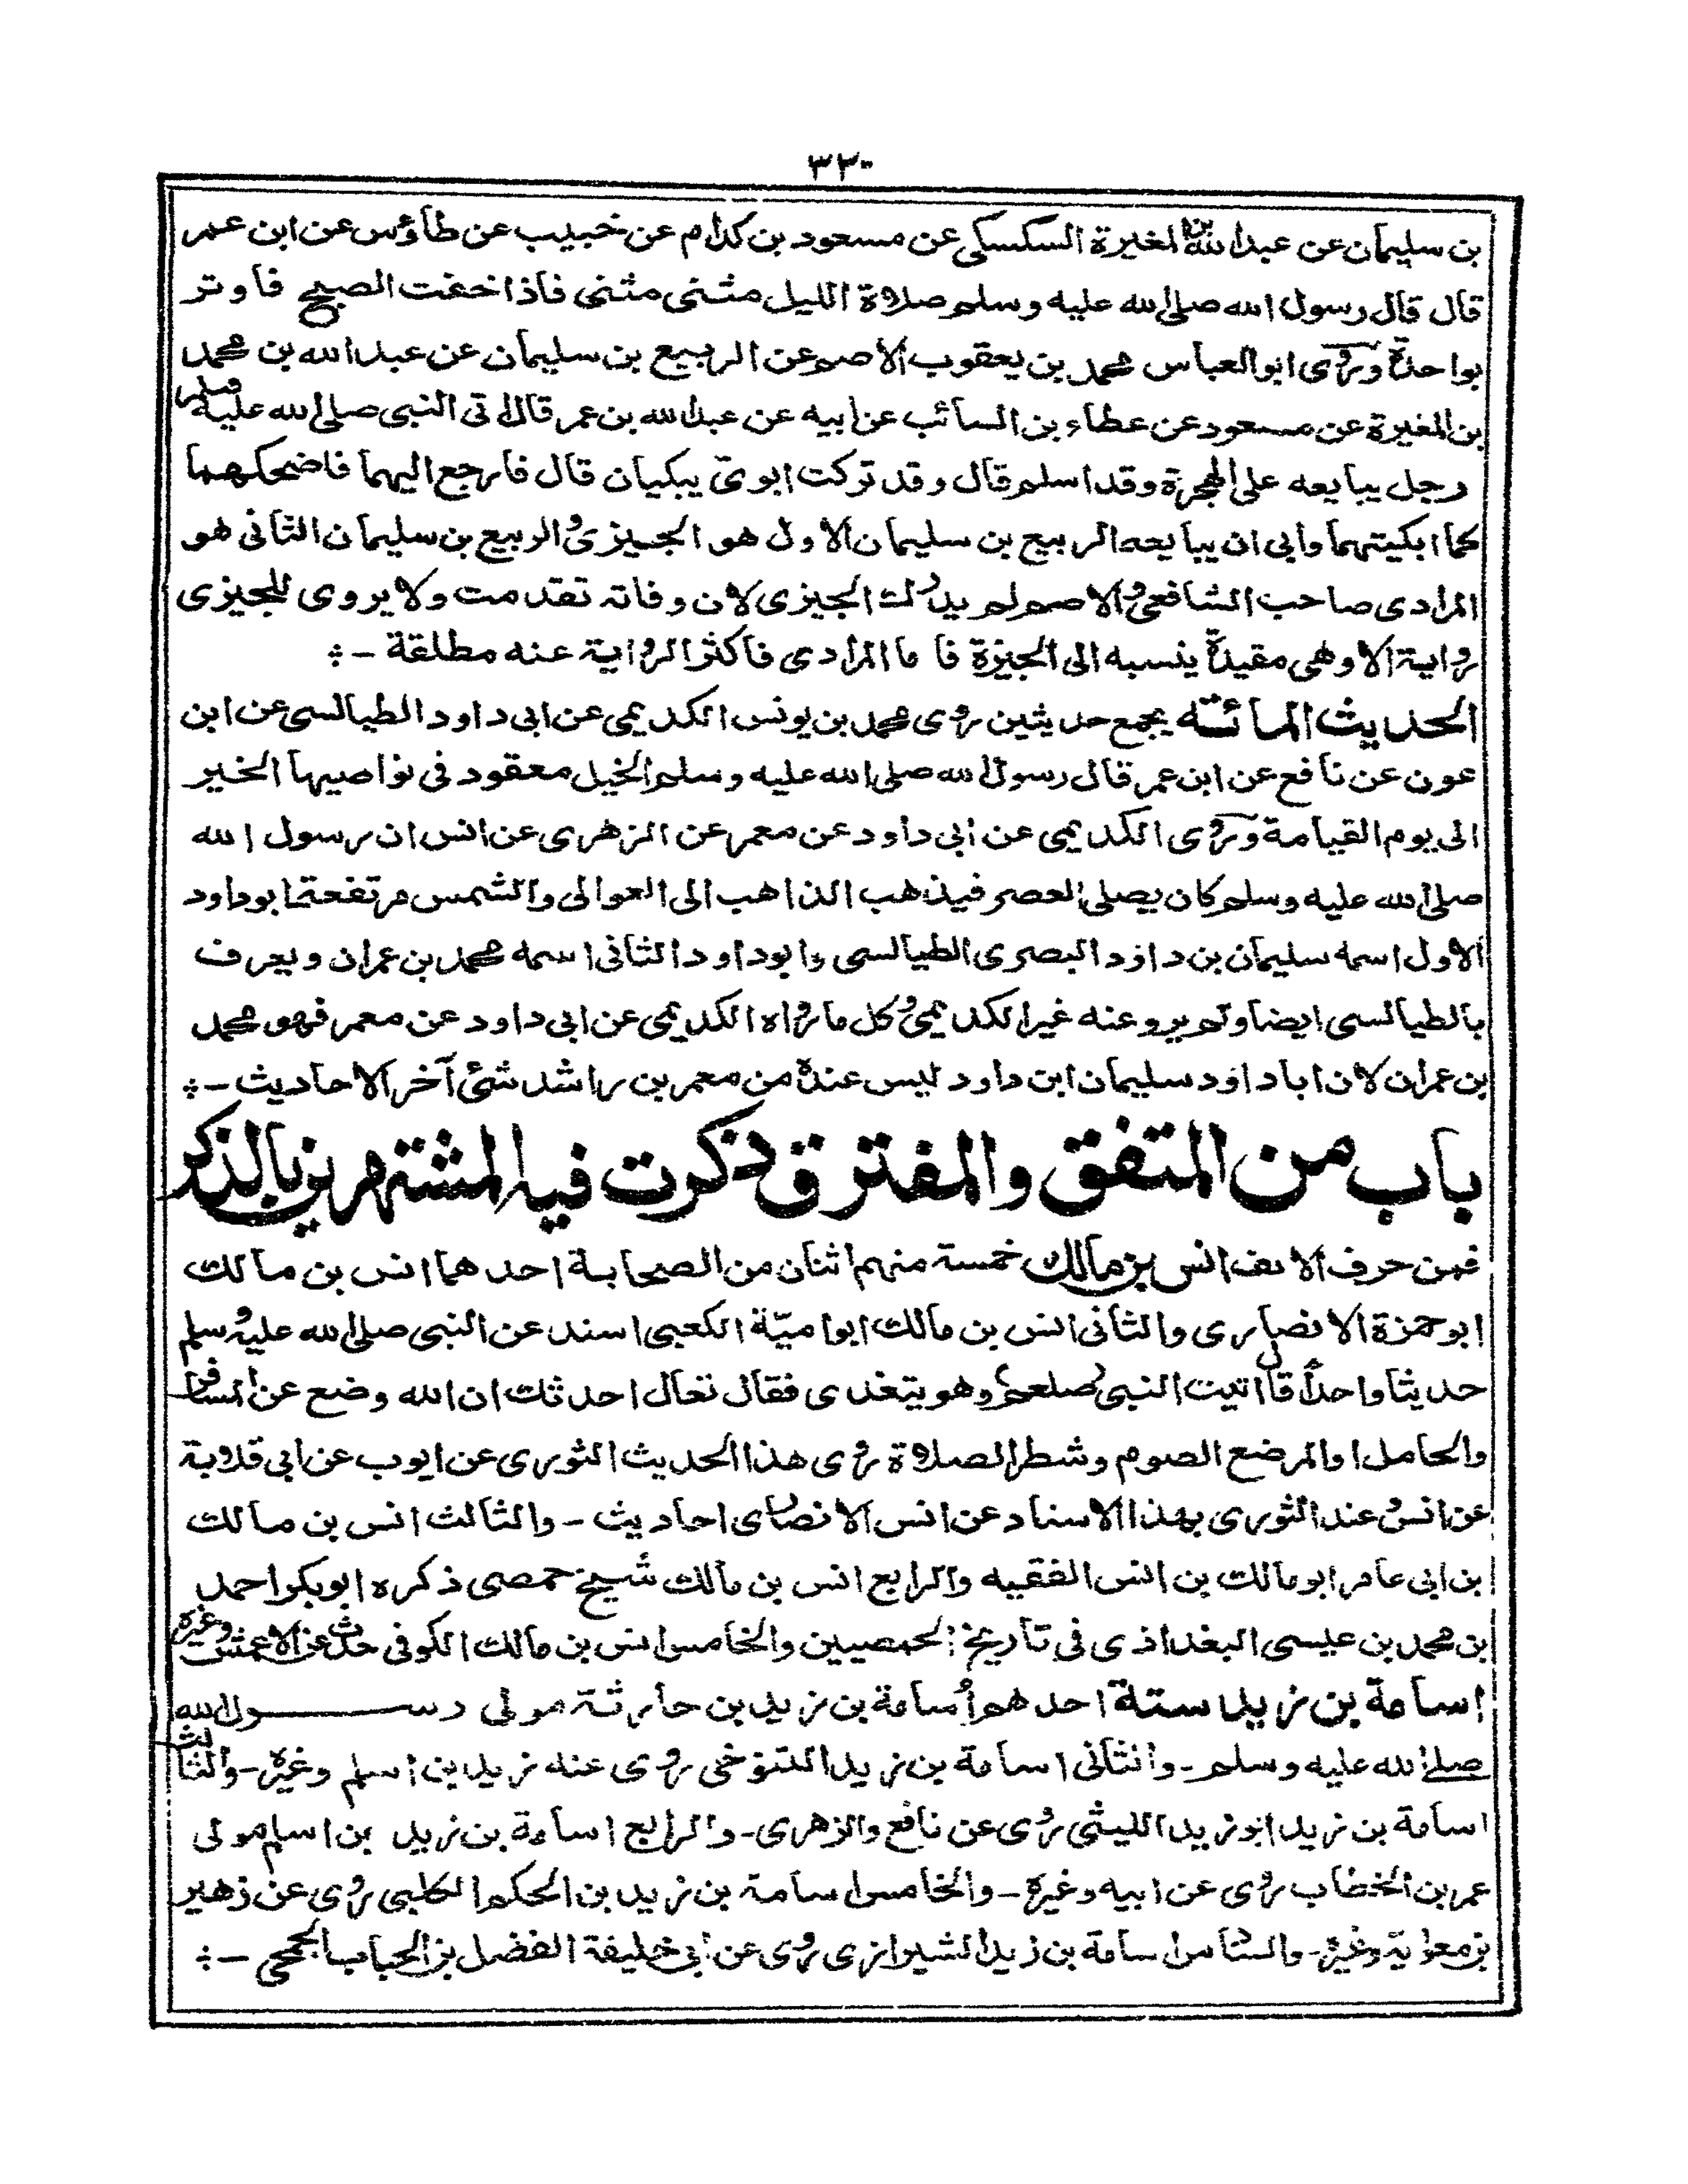 ٣٢٠
بن سليمان عن عبد الله بن المغيرة السكسكى عن مسعود بن كدام عن خبيب عن طاؤس عن ابن عمر
قال قال رسول الله صلى الله عليه وسلم صلاة الليل مثنى مثنى فاذا خفت الصبح فاوتر
بواحدة وروى ابو العباس محمد بن يعقوب الاصم عن الربيع بن سليمان عن عبد الله بن محمد
بن المغيرة عن مسعود عن عطاء بن السائب عن ابيه عن عبد الله بن عمر قال اتى النبى صلى الله عليه وسلم
رجل يبايعه على الهجرة وقد اسلم قال وقد تركت ابوىّ يبكيان قال فارجع اليهما فاضحكهما
كما ابكيتهما وابى ان يبايعه الربيع بن سليمان الاول هو الجيزى والربيع بن سليمان الثانى هو
المرادى صاحب الشافعى والاصم لم يدرك الجيزى لان وفاته تقدمت ولا يروى للجيزى
رواية الا وهى مقيدة ينسبه الى الجيزة فاما المرادى فاكثر الرواية عنه مطلقة -
الحديث المائته يجمع حديثين روى محمد بن يونس الكديمى عن ابى داود الطيالسى عن ابن
عون عن نافع عن ابن عمر قال رسول الله صلى الله عليه وسلم الخيل معقود فى نواصيها الخير
الى يوم القيامة وروى الكديمى عن ابى داود عن معمر عن الزهرى عن انس ان رسول الله
صلى الله عليه وسلم كان يصلى العصر فيذهب الذاهب الى العوالى والشمس مرتفعة ابو داود
الاول اسمه سليمان بن داؤد البصرى الطيالسى وابو داود الثانى اسمه محمد بن عمران ويعرف
بالطيالسى ايضا ولم يرو عنه غير الكديمى وكل ما رواه الكديمى عن ابى داود عن معمر فهو محمد
بن عمران لان ابا داؤد سليمان ابن داود ليس عنده من معمر بن راشد شئ آخر الاحاديث -
باب من المتفق والمفترق ذكرت فيه المشتهرين بالذكر
فمن حرف الالف انس بن مالك خمسة منهم اثنان من الصحابة احدهما انس بن مالك
ابو حمزة الانصارى والثانى انس بن مالك ابو اميّة الكعبى اسند عن النبى صلى الله عليه وسلم
حديثا واحدًا قال اتيت النبى صلعم وهو يتغدى فقال تعال احدثك ان الله وضع عن المسافر
والحامل والمرضع الصوم وشطر الصلاة روى هذا الحديث الثورى عن ايوب عن ابى قلابة
عن انس وعند الثورى بهذا الاسناد عن انس الانصارى احاديث - والثالث انس بن مالك
بن ابى عامر ابو مالك بن انس الفقيه والرابع انس بن مالك شيخ حمصى ذكره ابو بكر احمد
بن محمد بن عيسى البغداذى فى تاريخ الحمصيين والخامس انس بن مالك الكوفى حدث عن الاعمش وغيره
اسامة بن زيد ستة احدهم أسامة بن زيد بن حارثة مولى رسول الله
صلى الله عليه وسلم - والثانى اسامة بن زيد التنوخى روى عنه زيد بن اسلم وغيره - والثالث
اسامة بن زيد ابو زيد الليثى روى عن نافع والزهرى - والرابع اسامة بن زيد بن اسلم مولى
عمر بن الخطاب روى عن ابيه وغيره - والخامس اسامة بن زيد بن الحكم الكلبى روى عن زهير
بن معوية وغيره - والسادس اسامة بن زيد الشيرازى روى عن ابى خليفة الفضل بن الحباب الجمحى -